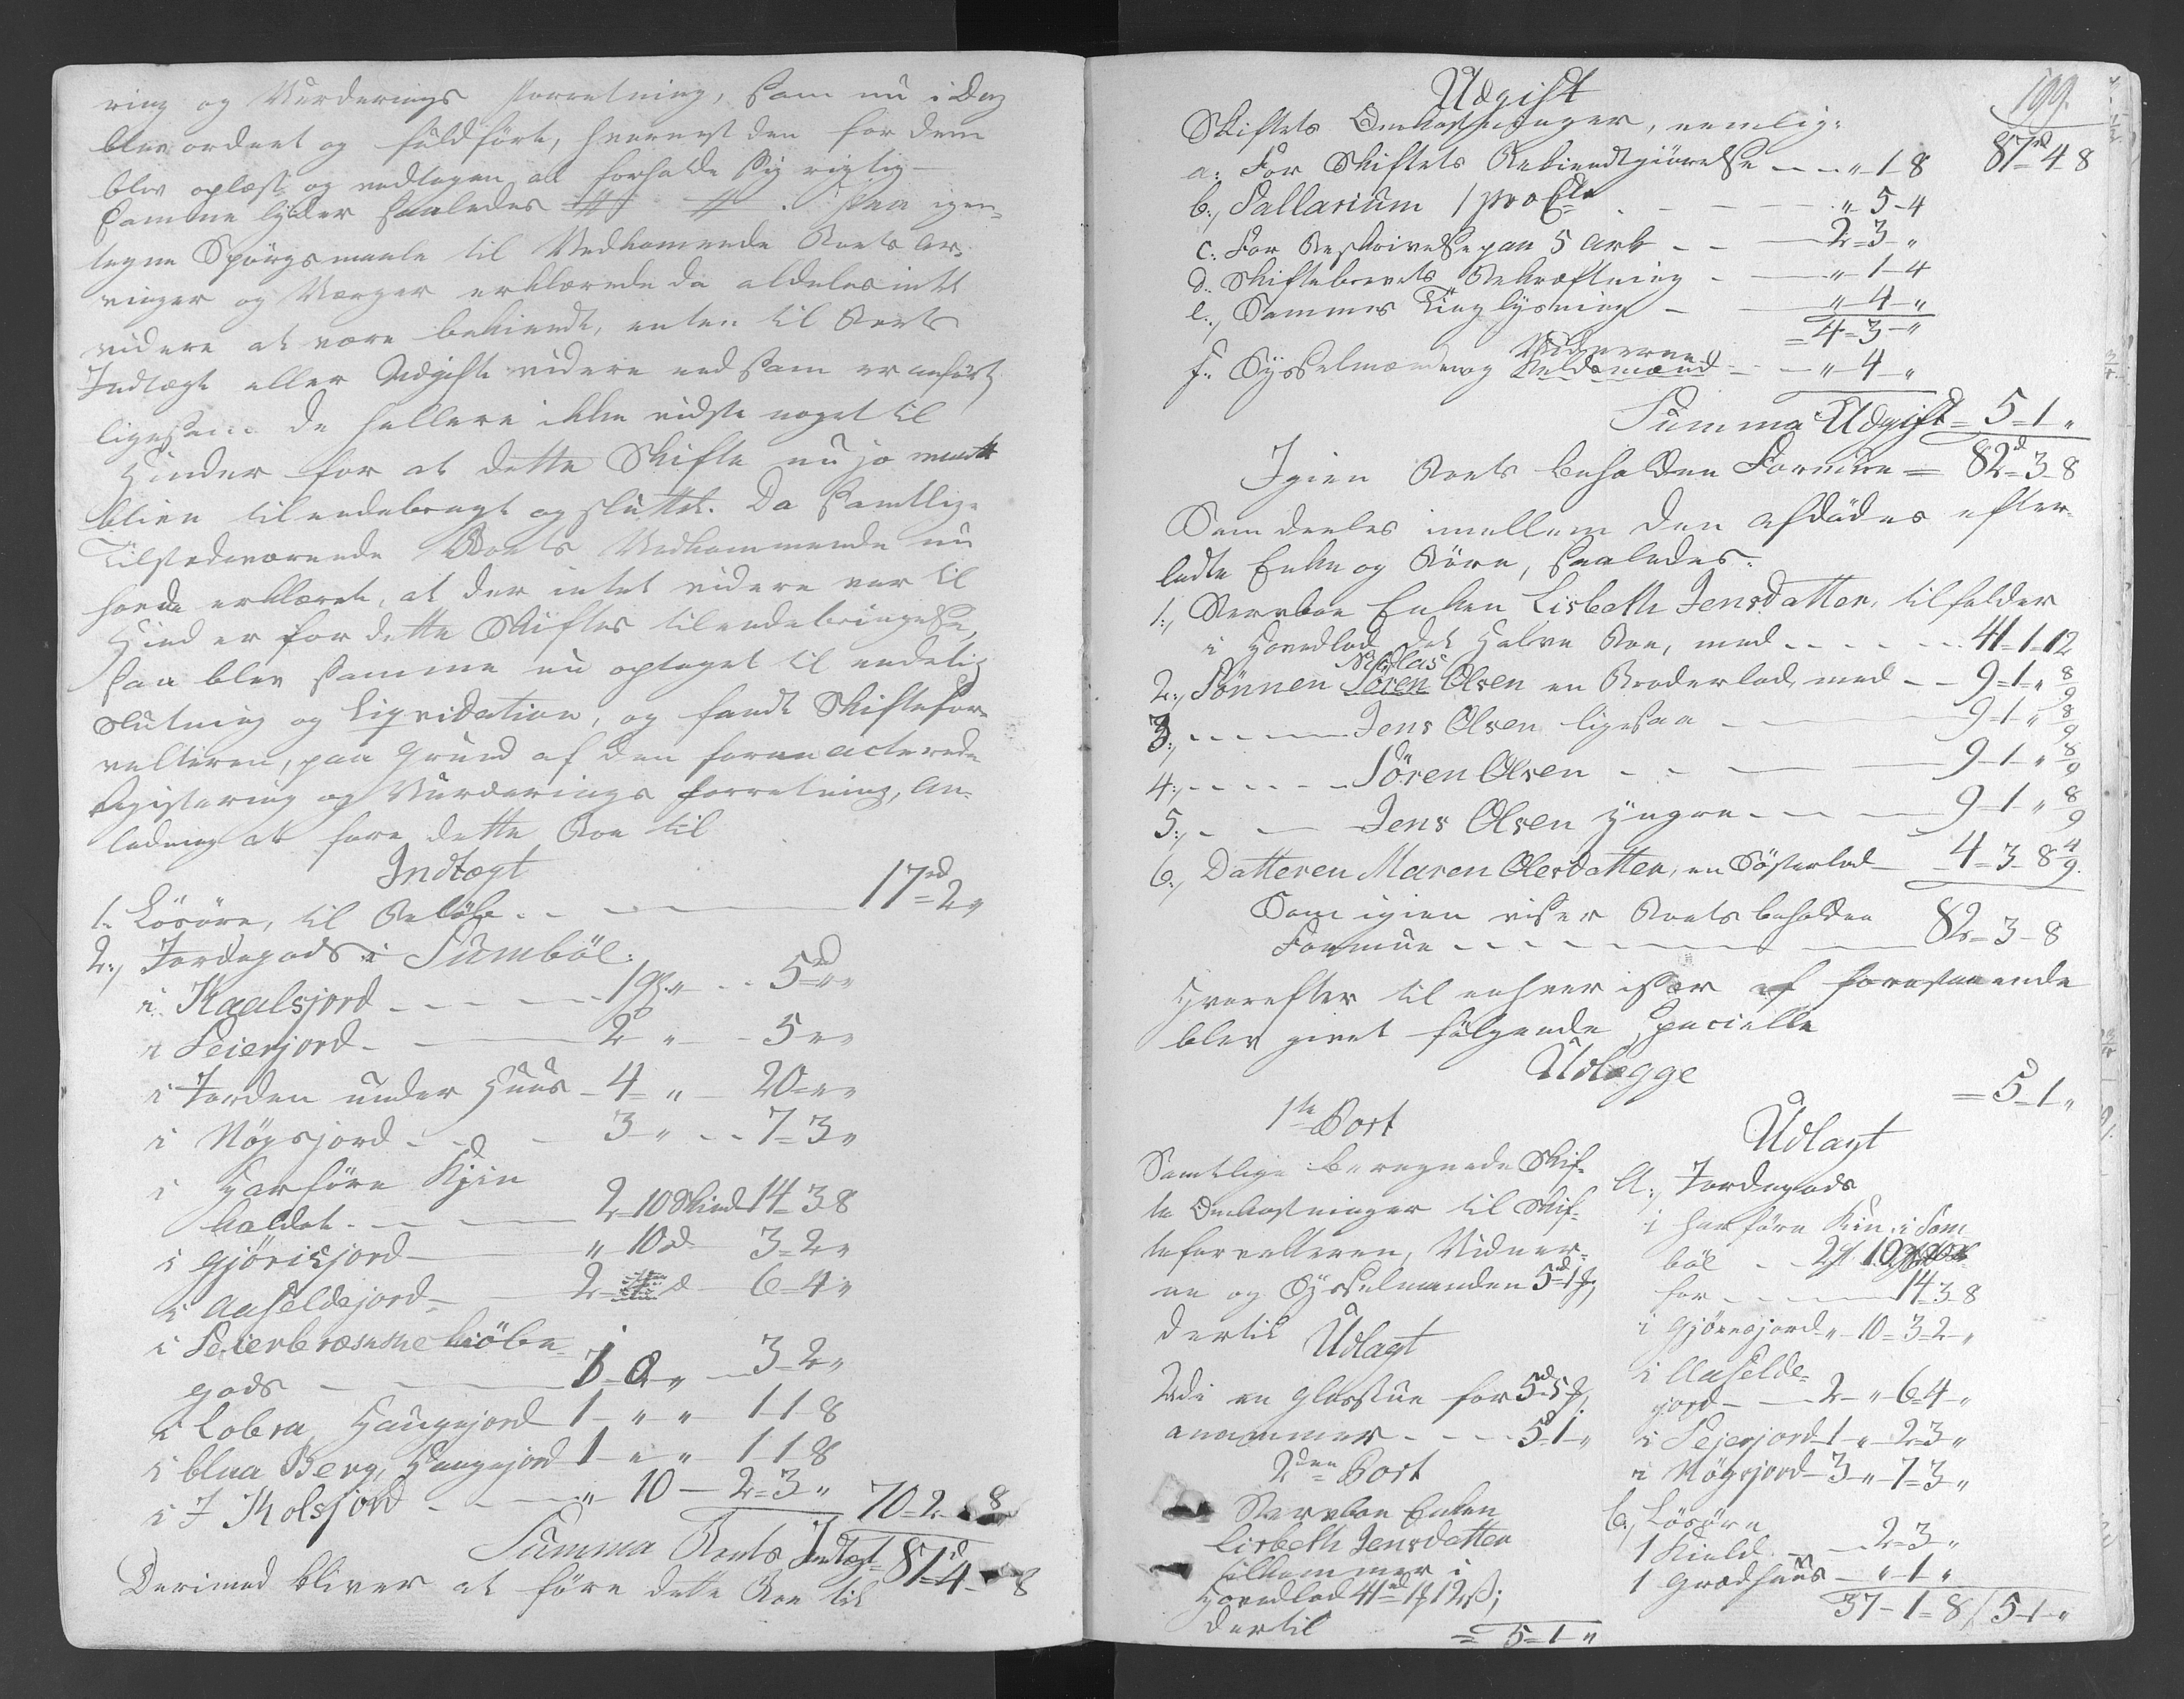 ring og Vurderings Forretning, som nu i Dag
blev ordnet og fuldført, hvornest den for dem
blev oplæst og vedtagen at forholde sig rigtig —
Samme lyder saaledes # # . Paa igien-
tagne Spörgsmaale til Vedkommende Boets Ar-
vinger og Værger erklærede de aldeles intet
videre at være bekiendt, enten til Boets
Indtægt eller Udgift videre end som er anført,
ligesom de hellere ikke vidste noget til
Hinder for at dette Skifte nu jo maatte
blive tilendebragt og sluttet. Da samtlige
Tilstedeværende Boets Vedkommende nu
havde erklæret, at der intet videre var til
Hinder for dette Skiftes tilendebringelse,
saa blev samme nu optaget til endelig
Slutning og Liqvidation, og fandt Skiftefor-
valteren, paa Grund af den foran acterede
Registering og Vurderings Forretning, An-
ledning at føre dette Boe til
Indtægt
1. Lösöre, til Beløb - - 17rd=2„
2:, Jordegods i Sumböl:
i Kaalsjord - - - 1 gl. „ - - 5rd=„„
i Seierjord - - 2 „ - 5„„
i Jorden under Huus - 4= „ - 20=„„
i Nögsjord - - - 3 „ - - 7=3„
i Harföre Kjin
haldet - - - 2=10 Skind 14=3=8
i Gjörisjord - „ 10 d 3=2„
i Aaheldejord - 2 d 6=4„
i Seierbræmme kiöbe-
gods - - 3=2„
i Lobra Haugejord 1 - „ „ 1-1-8
i blaa Berg, Haugejord 1 - „ „ 1-1-8
i J Kolsjord - - - „ 10 - 2=3„ 70=2=8
Summa Boets Indtægt 87d=4=8
Derimod bliver at føre dette Boe til
199.
Udgift
87rd=4-8
Skiftets Omkostninger, nemlig:
a: For Skiftets Bekiendtgiörelse - - „-1-8
b:, Sallarium 1 pro Cto - - - „ 5-4
c: For Beskrivelse paa 5 Ark - - 2=3-„
d. Skiftebrevets Bekræftning - „-1-4
e:, Sammes Tinglysning - „-4-„
=4=3-„
f: Sysselmanden og Vidnerne Uldsmænd - - „ 4-„
Summa Udgift = 5=1„
Igien Boets beholden Formue = 82d=3-8
Som deeles imellem den Afdödes efter-
ladte Enke og Börn, saaledes:
1:, Stervboe Enken Lisbeth Jensdatter, tilfalder
i Hovedlod det Halve Boe, med - - - - - 41=1=12
2:, Sönnen Niclas Sören Olsen en Broderlod, med - - 9=1=„ 8/9
3:, - - - Jens Olsen ligesaa - 9=1„ 8/9
4:, - - - - Sören Olsen - - 9-1-„ 8/9
5:, - - Jens Olsen yngre - - 9=1-„ 8/9
6:, Datteren Maren Olesdatter, en Søsterlod - 4=3=8 4/9.
Som igien viser Boets beholden
Formue - - - - - 82=3-8
Hvorefter til enhver især af forestaaende
blev givet følgende specielle
Udlægge
1ste Post
=5-1„
Samtlige beregnede Skif-
te Omkostninger til Skif-
teforvalteren, Vidner-
ne og Sysselmanden 5rd=1 ß,
dertil
Udlagt
Udi en Glasstue for 5rd 5 ß,
anammes - - - 5-1-„
2den Post
Stervboe Enken
Lisbeth Jensdatter
tilkommer i
Hovedlod 41rd 1 ß 12 ß;
dertil =5-1-„
Udlagt
A:, Jordegods
i Harföre Kin, i Sum
böl - - 2 gl. 10
for - - - 14=3-8
i Gjörisjord „-10=3=2-„
i Aahelde-
jord - - 2-„ 6-4-„
i Sejerjord 1-„-2-3„
i Nögsjord - 3-„-7=3„
b:, Lösöre
1 Kield - - 2=3„
1 Grædhuus - „-1„
37-1=8 / 5-1-„